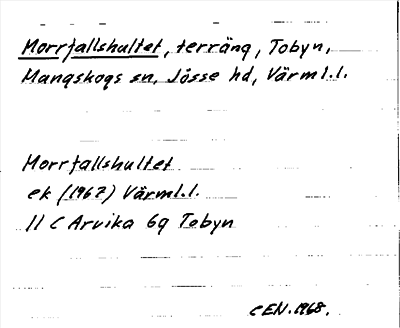 Morrfallshultet, terräng, Tobyn,
Mangskogs sn, Jösse hd, Värml.l.
Morrfallshultet
ek (1967) Värml.l.
11 C Arvika 6g Tobyn
CEN. 1968.